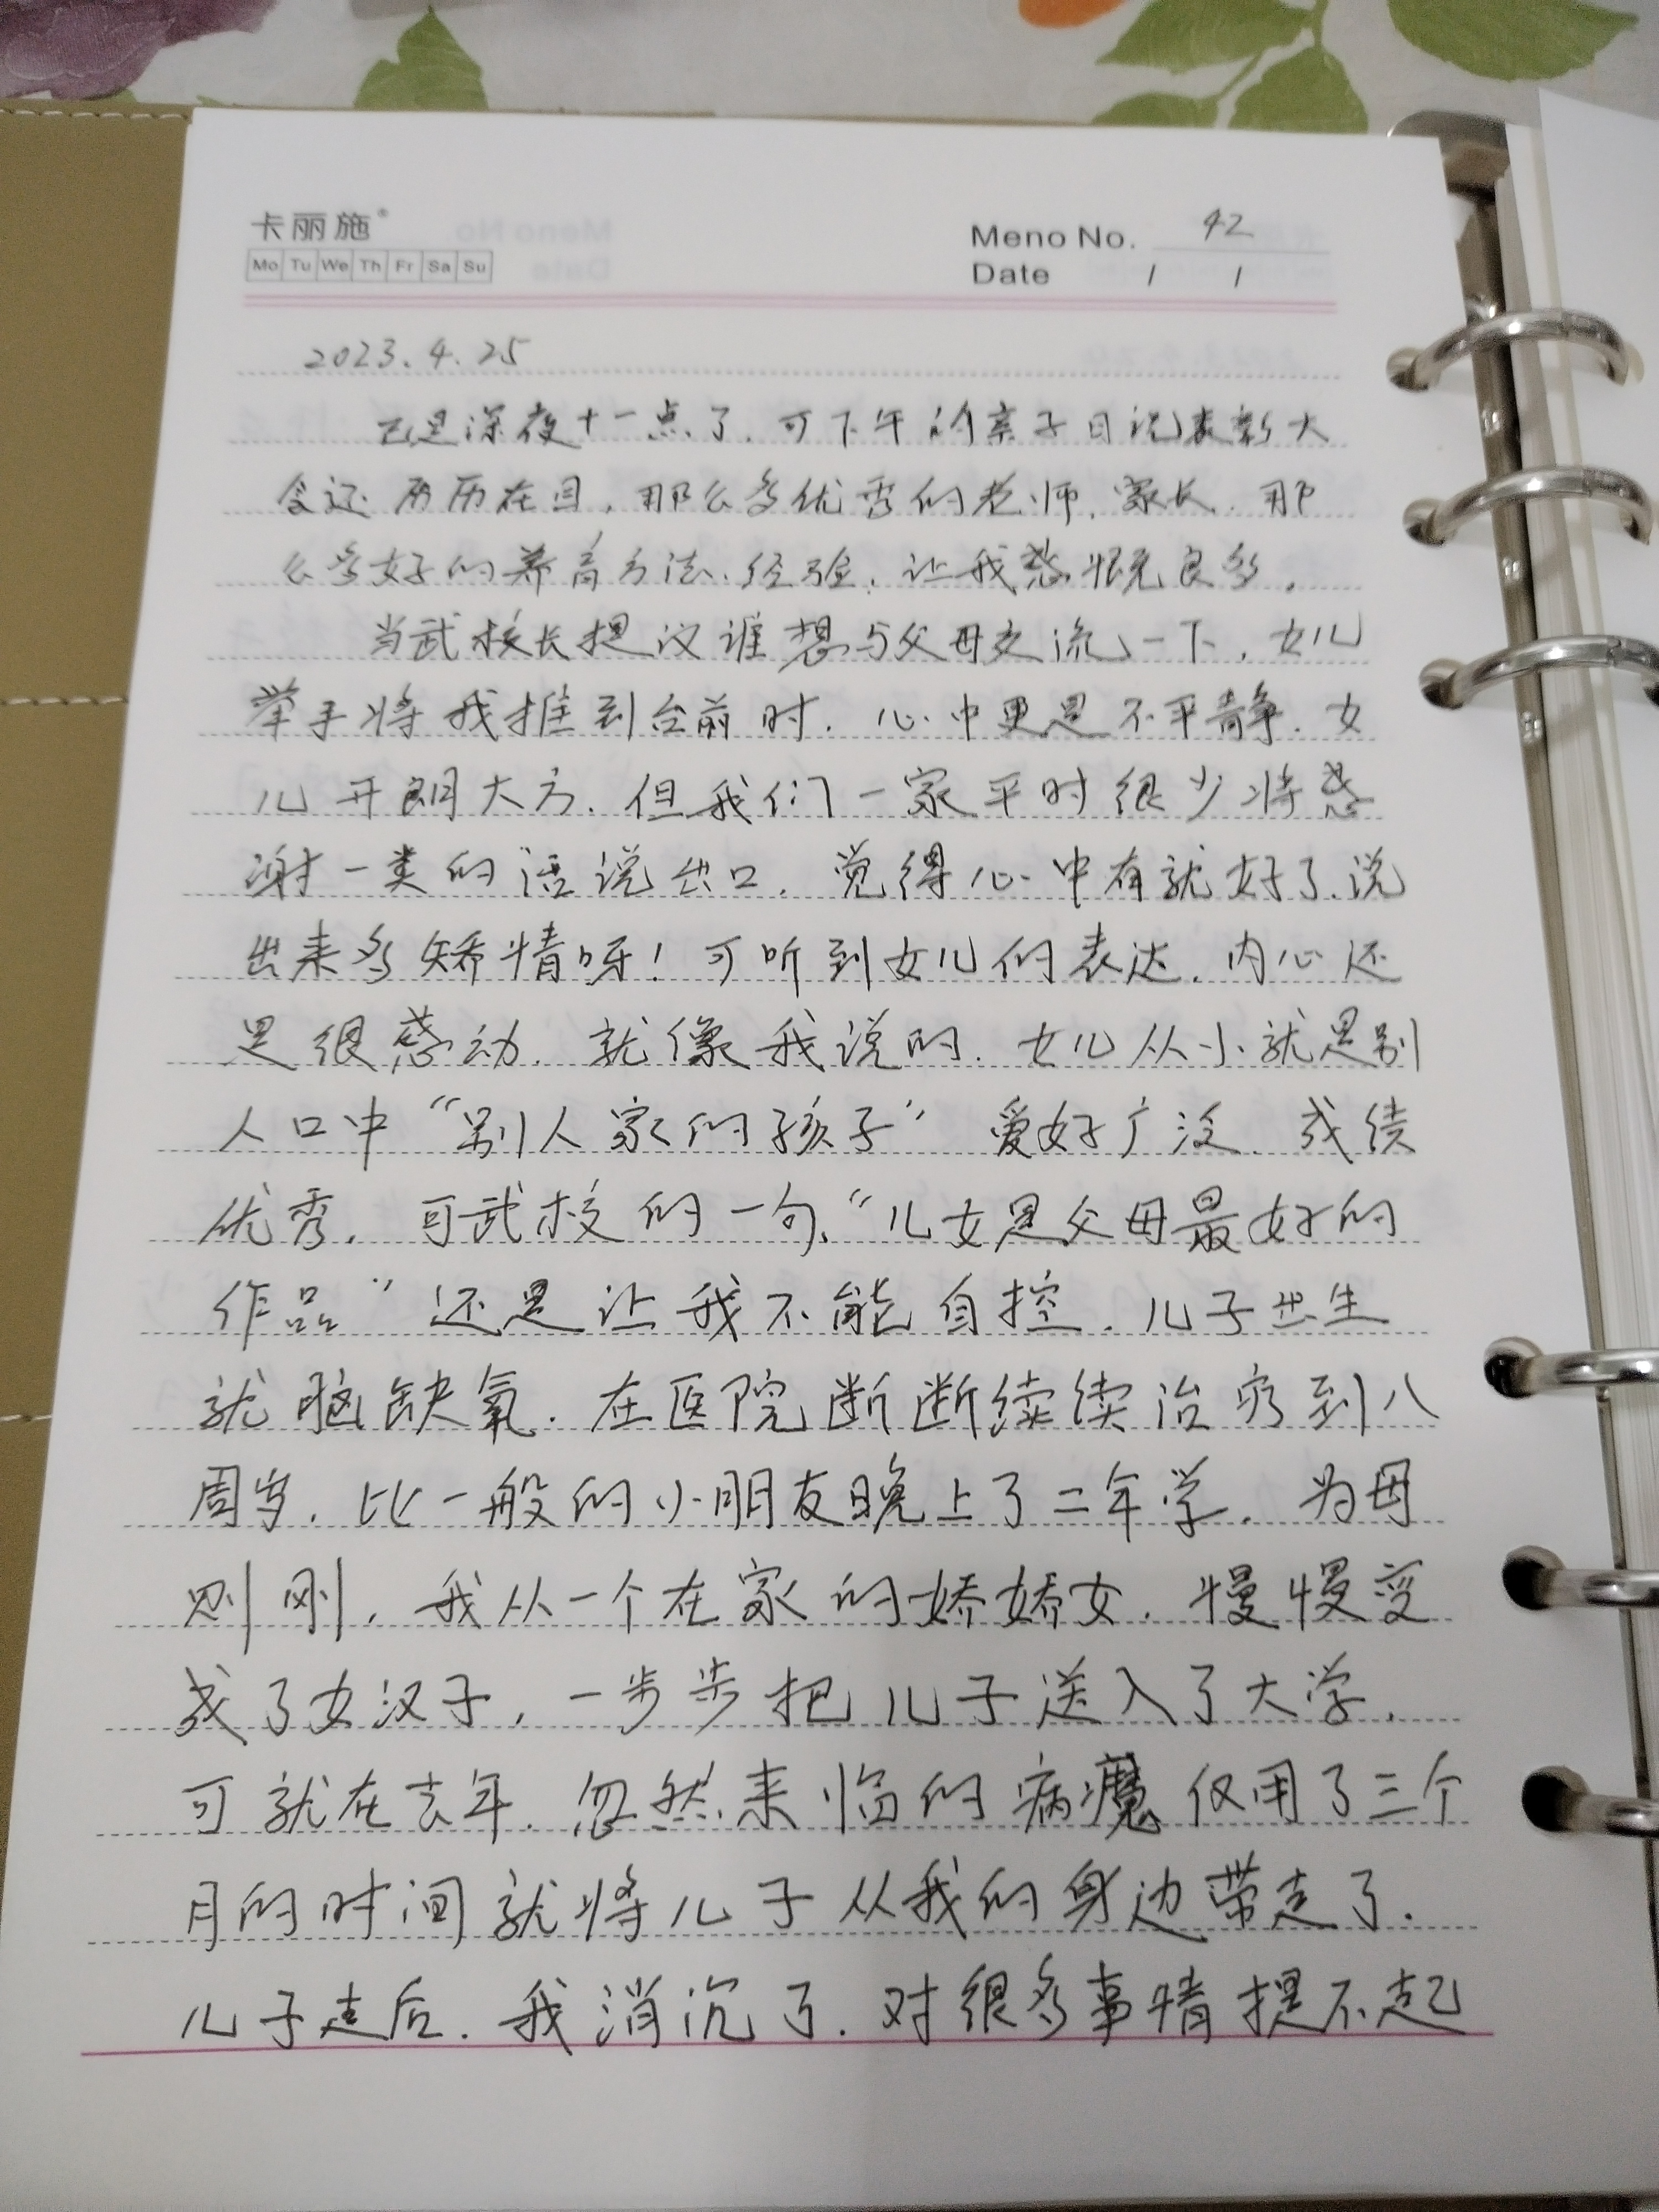 卡丽施®
Mo Tu We Th Fr Sa Su
Meno No. 42
Date / /
2023.4.25
已是深夜十一点了.可下午的亲子日记表彰大
会还历历在目,那么多优秀的老师,家长,那
么多好的养育方法、经验,让我感慨良多.
当武校长提议谁想与父母交流一下,女儿
举手将我推到台前时.心中更是不平静.女
儿开朗大方.但我们一家平时很少将感
谢一类的话说出口.觉得心中有就好了.说
出来多矫情呀!可听到女儿的表达.内心还
是很感动.就像我说的.女儿从小就是别
人口中“别人家的孩子”爱好广泛.成绩
优秀.可武校的一句.“儿女是父母最好的
作品”还是让我不能自控.儿子出生
就脑缺氧.在医院断断续续治疗到八
周岁.比一般的小朋友晚上了二年学.为母
则刚,我从一个在家的娇娇女.慢慢变
成了女汉子,一步步把儿子送入了大学.
可就在去年.忽然来临的病魔仅用了三个
月的时间就将儿子从我的身边带走了.
儿子走后.我消沉了.对很多事情提不起